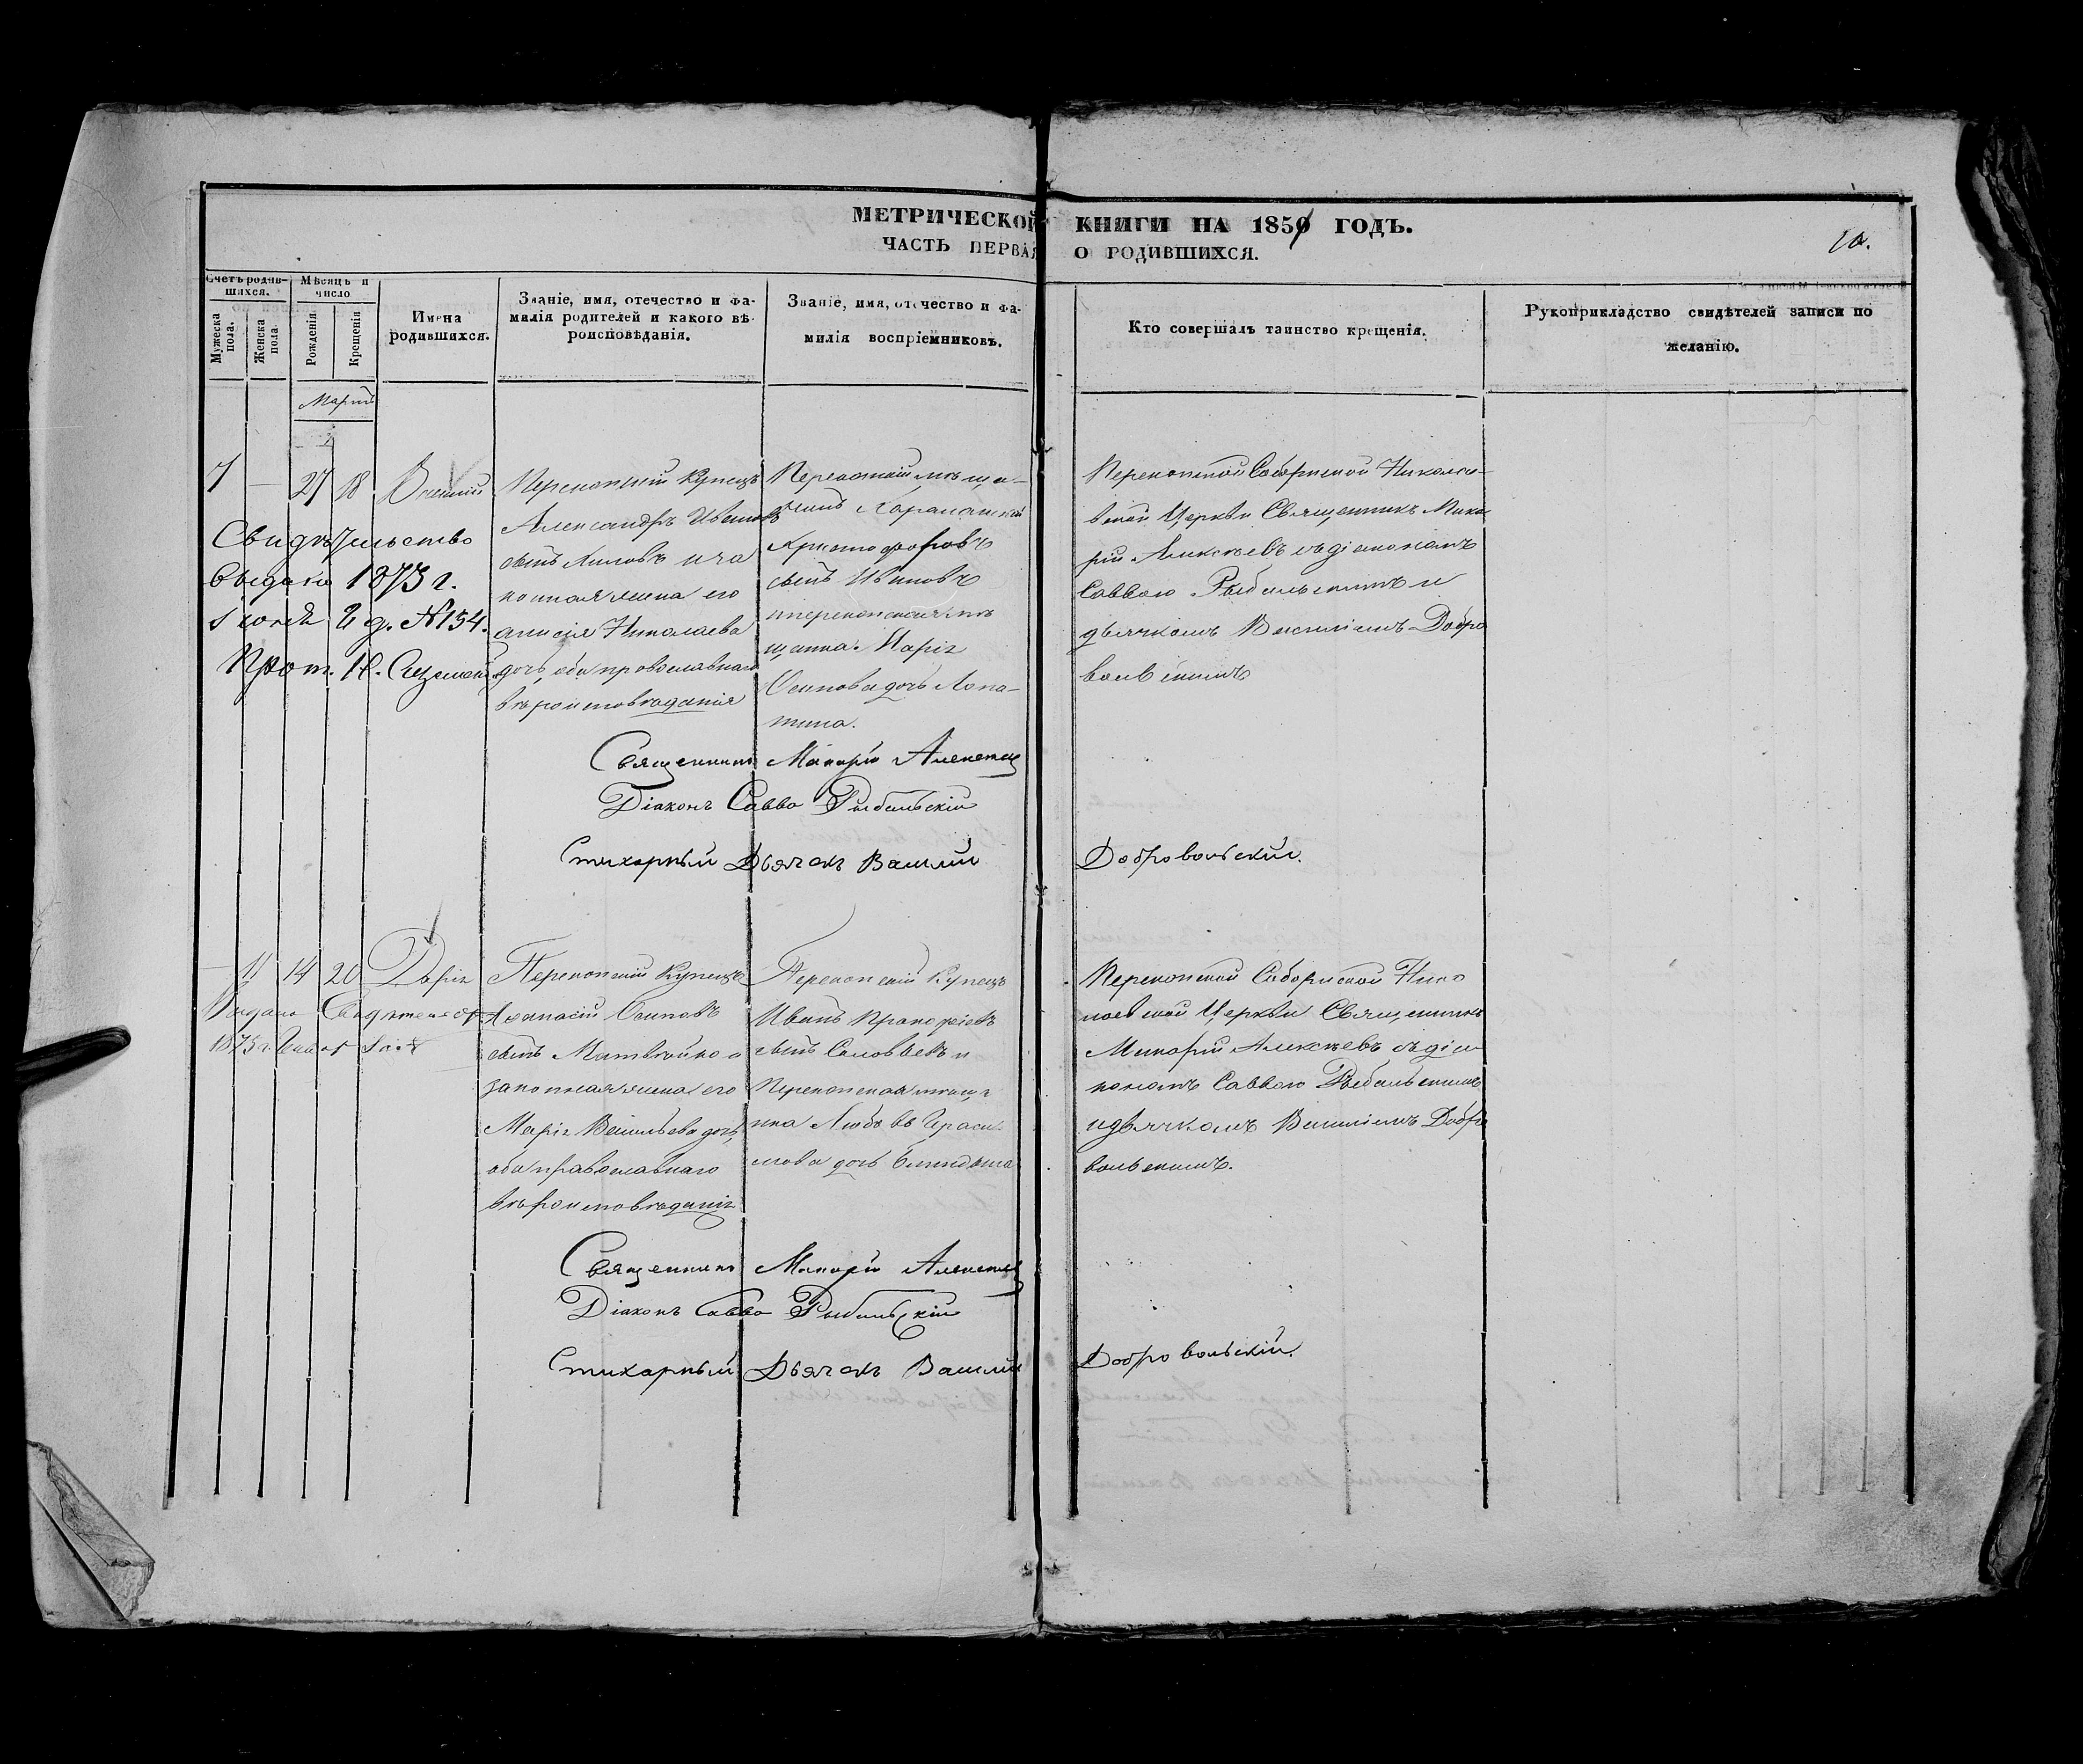 МЕТРИЧЕСКОЙ КНИГИ НА 1850 ГОДЪ.
ЧАСТЬ ПЕРВАЯ О РОДИВШИХСЯ.
10.
Счетъ родив-
шихся.
Мужеска пола.
Женска пола.
Мѣсяцъ и
число
Рожденія.
Крещенія
Имена
родившихся.
Званіе, имя, отечество и фа-
милія родителей и какого вѣ-
роисповѣданія.
Званіе, имя, отечество и фа-
милія воспріемниковъ.
Кто совершалъ таинство крещенія.
Рукоприкладство свидѣтелей записи по
желанію.
Мартъ
7 — 27 18
Свидѣтельство
выдано 1873 г.
№ 154.
Прот.
Перекопскій Купецъ
Александръ Ивановъ
сынъ
конная жена его
Николаева
дочь, оба православнаго
вѣроисповѣданія
Перекопскій мѣща-
нинъ
Христофоровъ
сынъ Ивановъ
и перекопская мѣ
щанка Марія
Осипова дочь Лопа-
тина.
Перекопской Соборной Николаев-
вской Церкви Священникъ Мака
рій Алексѣевъ съ діакономъ
Саввою Рыбальскимъ и
дьячкомъ Василіемъ Добро
вольскимъ
Священникъ Макарій Алексѣевъ
Діаконъ Савва Рыбальскій
Стихарный Дьячекъ Василій Добровольскій.
— 11 14 20 Дарія
Выдано
1875 г.
Перекопскій Купецъ
Афанасій Осиповъ
сынъ Матвѣйко и
законная жена его
Марія Васильева дочь,
оба православнаго
вѣроисповѣданія
Перекопскій Купецъ
Иванъ Прокофіевъ
сынъ Соловьевъ и
Перекопская мѣща
нка Любовь Гераси
мова дочь
Перекопской Соборной Нико
лаевской Церкви Священникъ
Макарій Алексѣевъ съ діа
кономъ Саввою Рыбальскимъ
и дьячкомъ Василіемъ Добро
вольскимъ.
Священникъ Макарій Алексѣевъ
Діаконъ Савва Рыбальскій
Стихарный Дьячекъ Василій Добровольскій.